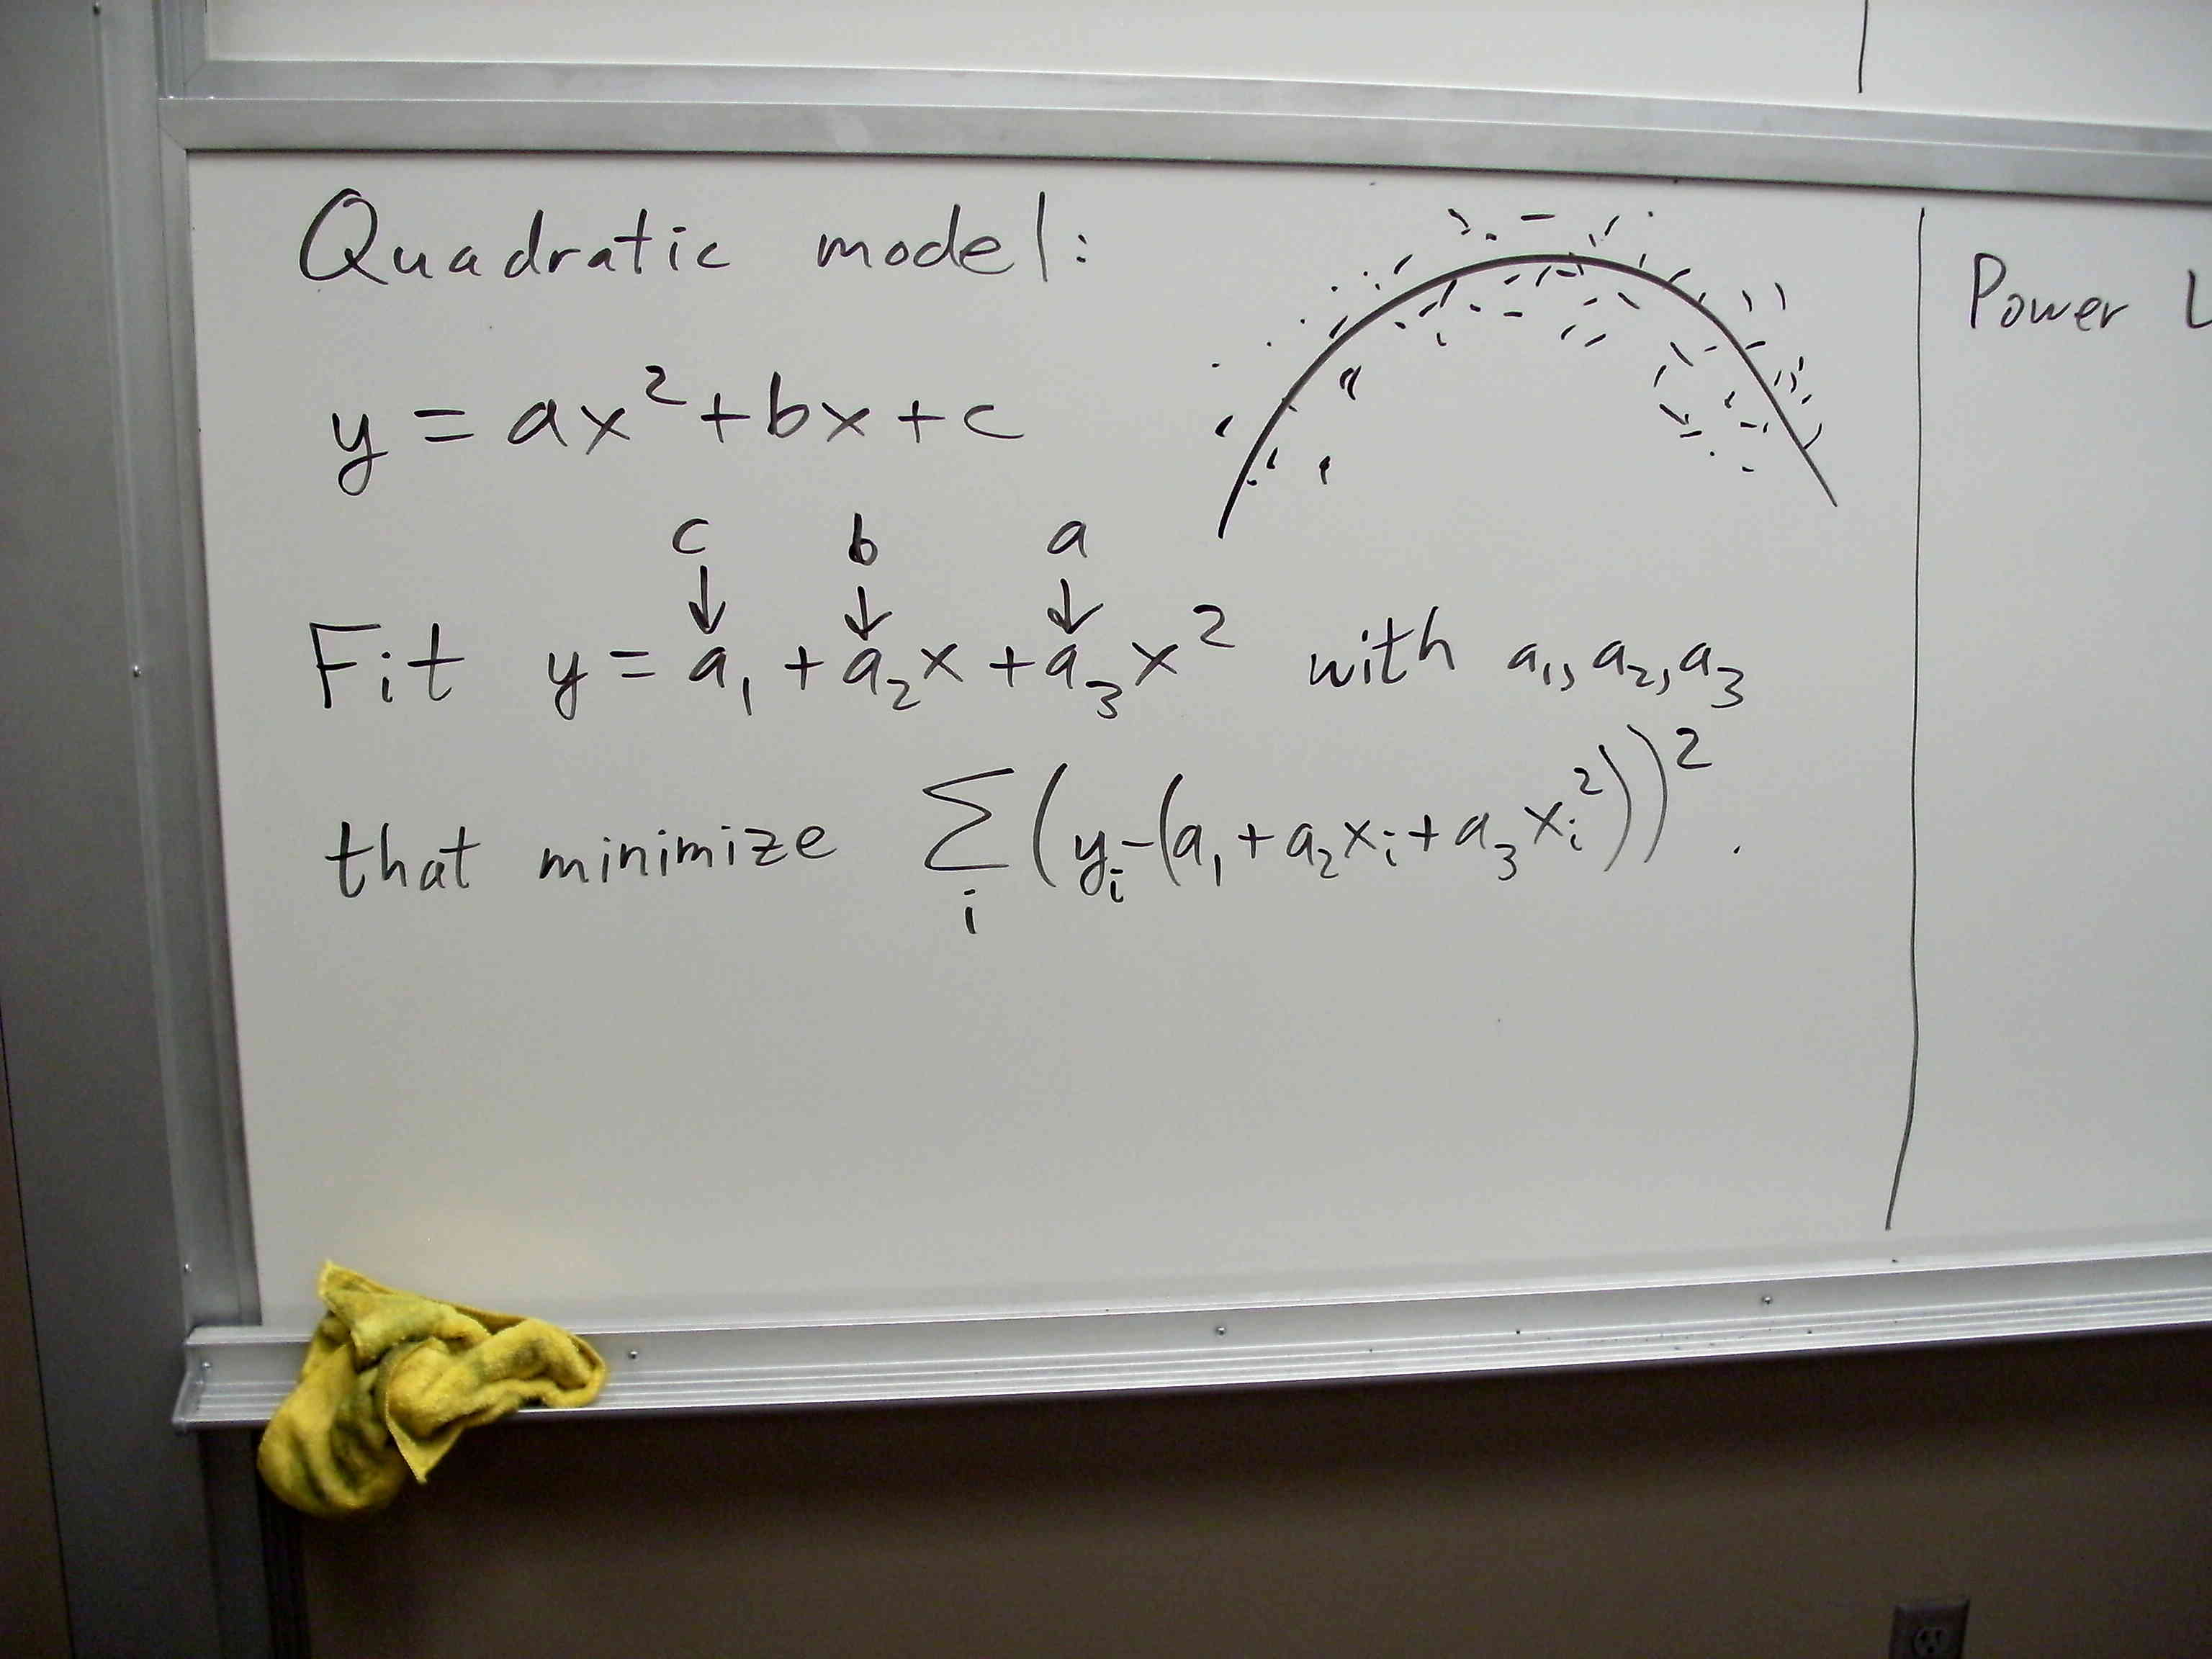 Quadratic model:
y = ax² + bx + c
c b a
↓ ↓ ↓
Fit y = a₁ + a₂x + a₃x² with a₁, a₂, a₃
that minimize ∑ᵢ (yᵢ - (a₁ + a₂xᵢ + a₃xᵢ²))² .
Power